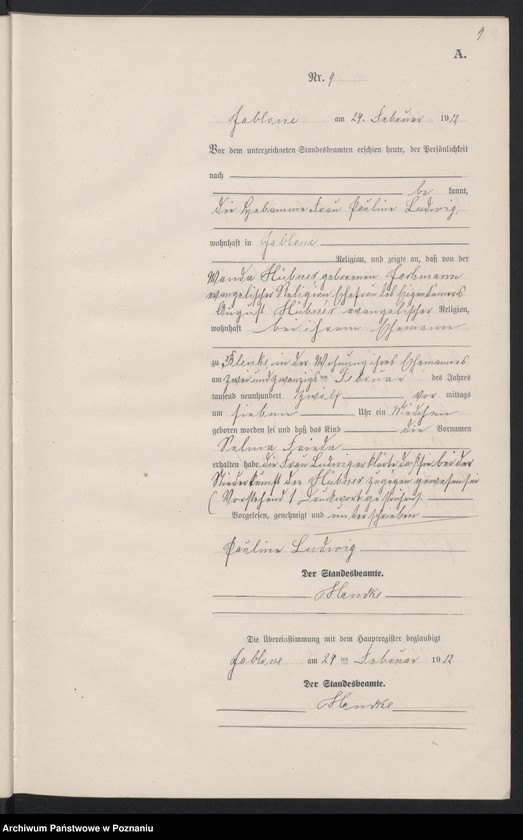 9
A.
Nr. 9
Jablone am 24. Februar 1912
Vor dem unterzeichneten Standesbeamten erschien heute, der Persönlichkeit
nach
be kannt,
die Hebamme Frau Pauline Ludwig,
wohnhaft in Jablone
Religion, und zeigte an, daß von der
Wanda Hübner geborenen
evangelischer Religion Ehefrau des Eigentümers
August Hübner evangelischer Religion,
wohnhaft bei ihrem Ehemann
zu in der Wohnung ihres Ehemannes
am zwei und zwanzigsten Februar des Jahres
tausend neunhundert zwölf vor mittags
um sieben Uhr ein Mädchen
geboren worden sei und daß das Kind die Vornamen
Selma Frieda
erhalten habe. die Frau Ludwig erklärte daß sie bei der
Niederkunft der Hübner zugegen gewesen sei
(Vorstehend 1 Druckwort gestrichen).
Vorgelesen, genehmigt und unterschrieben
Pauline Ludwig
Der Standesbeamte.
Die Übereinstimmung mit dem Hauptregister beglaubigt
Jablone am 24 ten Februar 1912
Der Standesbeamte.
Archiwum Państwowe w Poznaniu